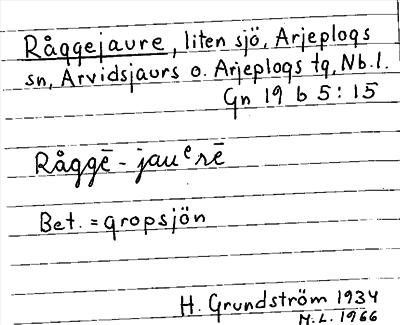 Råggejaure, liten sjö, Arjeplogs
sn, Arvidsjaurs o. Arjeplogs tg, Nb.l.
Gn 19 b 5:15
Råggē - jauᵉrē
Bet. = gropsjön
H. Grundström 1934
M.L. 1966